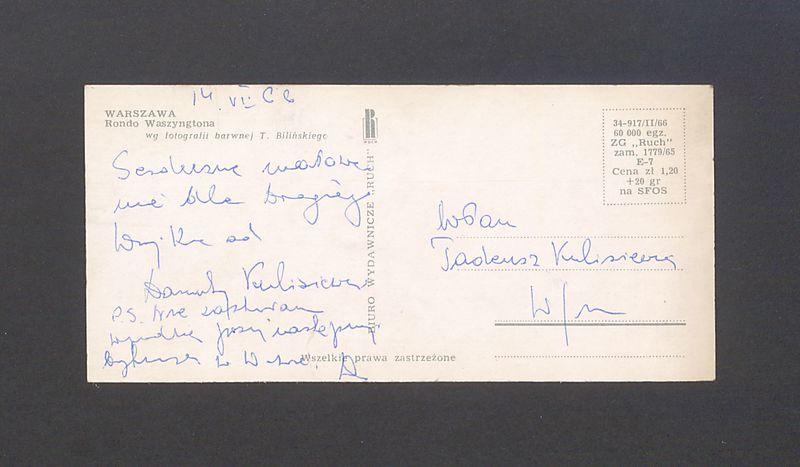 14 VI 66
WARSZAWA
Rondo Waszyngtona
wg fotografii barwnej T. Bilińskiego
Serdeczne
dla Drogiego
Wujka od
Danuty Kulisiewicz
P.S. Nie
w W-wie. D
RUCH
BIURO WYDAWNICZE „RUCH”
Wszelkie prawa zastrzeżone
34-917/II/66
60 000 egz.
ZG „Ruch”
zam. 1779/65
E-7
Cena zł 1,20
+20 gr
na SFOS
WPan
Tadeusz Kulisiewicz